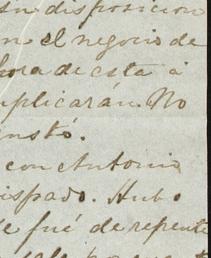 sin disposicion
en el negocio de
hora de esta á
uplicarán. No
ensto.
con Antonio
ispado. Hubo
e fué de repente